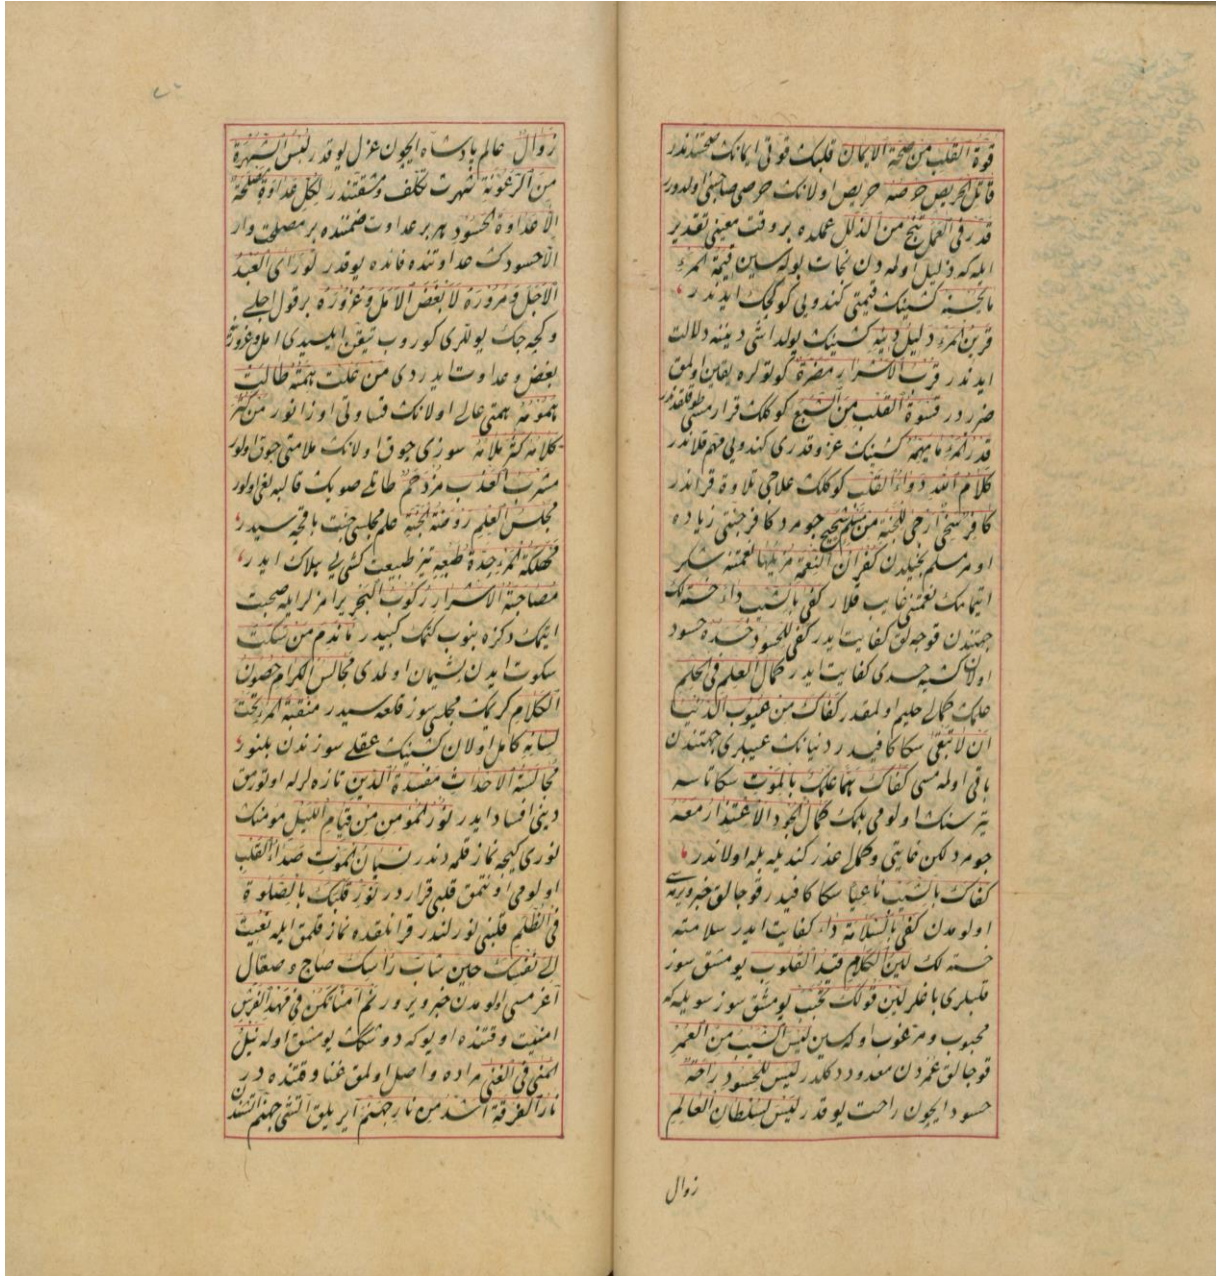 قوة القلب من صحة الايمان قلبك قوتى ايمانك صحتندندر
قاتل الحريص حرصه حريص اولانك حرصى صاحبنى اولدورر
قدر فى العمل تنج من الذلل عملده بر وقت معينى تقدير
ايله كه ذليل اولمه دن نجات بوله سين قيمة المرء
ما يحسنه كشينك قيمتى كندويى كوكچك ايدندر
قرين المرء دليل دينه كشينك يولداشى دينينه دلالت
ايدندر قرب الاشرار مضرة كوتولره يقين اولمق
ضرردر قسوة القلب من الشبع كوكلك قرارمسى طوقلقدندر
قدر المرء ما يهمه كشينك عز وقدرى كندويى فهم قلاندر
كلام الله دواء القلب كوكلك علاجى تلاوة قراندر
كافر سخى ارجى للجنة من مسلم شحيح جومرد كافر جنتى زياده
اومر مسلم بخيلدن كفران النعمة مزيلها نعمتنه شكر
ايتمامك نعمتنى غايب قلار كفى بالشيب داء خسته لك
جهتندن قوجه لق كفايت ايدر كفى للحسود حسده حسود
اولان كشيه حسدى كفايت ايدر كمال العلم فى الحلم
علمك كمالى حليم اولمقدر كفاك من عيوب الدنيا
ان لا تبقى سكا كافيدر دنيانك عيبلرى جهتندن
باقى اولمه مسى كفاك هما علمك بالموت سكا تاسه
يتر سنك اولومى بلمك كمال الجود الاعتذار معه
جومردلكن غايتى وكمالى عذر كنديله بله اولاندر
كفاك بالشيب ناعيا سكا كافيدر قوجالق خبر ويرمسى
اولومدن كفى بالسلامة داء كفايت ايدر سلامته
خسته لك لين الكلام قيد القلوب يومشق سوز
قلبلرى باغلر لين قولك تحبب يومشق سوز سويله كه
محبوب ومرغوب اوله سين ليس الشيب من العمر
قوجالق عمردن معدود دكلدر ليس للحسود راحة
حسود ايچون راحت يوقدر ليس لسلطان العالم
زوال
زوال عالم پادشاه ايچون عزل يوقدر ليس الشهرة
من الرعونة شهرت تكلف ومشقتندر لكل عداوة مصلحة
الا عداوة الحسود هر بر عداوت ضمننده بر مصلحت وار
الا حسودك عداوتنده فائده يوقدر لو راى العبد
الاجل ومروره لابغض الامل وغروره بر قول اجلى
وكچه جك يوللرى كوروب تيقن ايلسيدى امل وغرورنه
بغض وعداوت ايدردى من علت همته طالت
همومه همتى عالى اولانك قساوتى اوزانور من كثر
كلامه كثر ملامه سوزى چوق اولانك ملامتى چوق اولور
مشرب العذب مزدحم طاتلى صويك قالبه لغى اولور
مجلس العلم روضة الجنة علم مجلسى جنت باقچه سيدر
مهلكة المرء حدة طبعه تيز طبيعت كشى يى هلاك ايدر
مصاحبة الاشرار ركوب البحر يرامزلر ايله صحبت
ايتمك دكزه بنوب كتمك كبيدر ما ندم من سكت
سكوت ايدن پشيمان اولمدى مجالس الكرام حصون
الكلام كريمك مجلسى سوز قلعه سيدر منقبة المرء تحت
لسانه كامل اولان كشينك عقلى سوزندن بلنور
مجالسة الاحداث مفسدة الدين تازه لرله اوتورمق
دينى افساد ايدر نور المؤمن من قيام الليل مومنك
نورى كيجه نماز قلمه دندر نسيان الموت صداء القلب
اولومى اونتمق قلبى قراردر نور قلبك بالصلوة
فى الظلم قلبنى نورلندر قرانلقده نماز قلمق ايله نعيت
الى نفسك حين شاب راسك صاچ وصقال
آغرمسى اولومدن خبر ويرر نم آمنا تكن فى مهد الفرش
امنيت وقتنده اويو كه دوشكك يومشق اوله نيل
المنى فى الغنى مراده واصل اولمق غنا وقتنده در
نار الفرقة اشد من نار جهنم آيريلق آتشى جهنم آتشندن